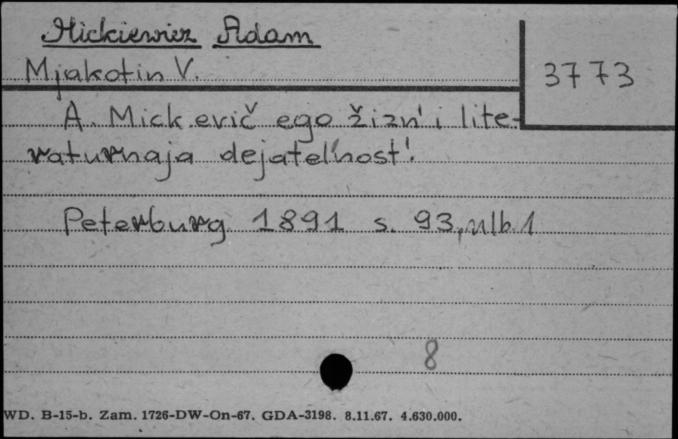 Mickiewicz Adam
Mjakotin V.
3773
A. Mickevič ego žizn' i lite-
raturnaja dejatel'nost'.
Peterburg 1891 s. 93, nlb. 1
8
WD. B-15-b. Zam. 1726-DW-On-67. GDA-3198. 8.11.67. 4.630.000.